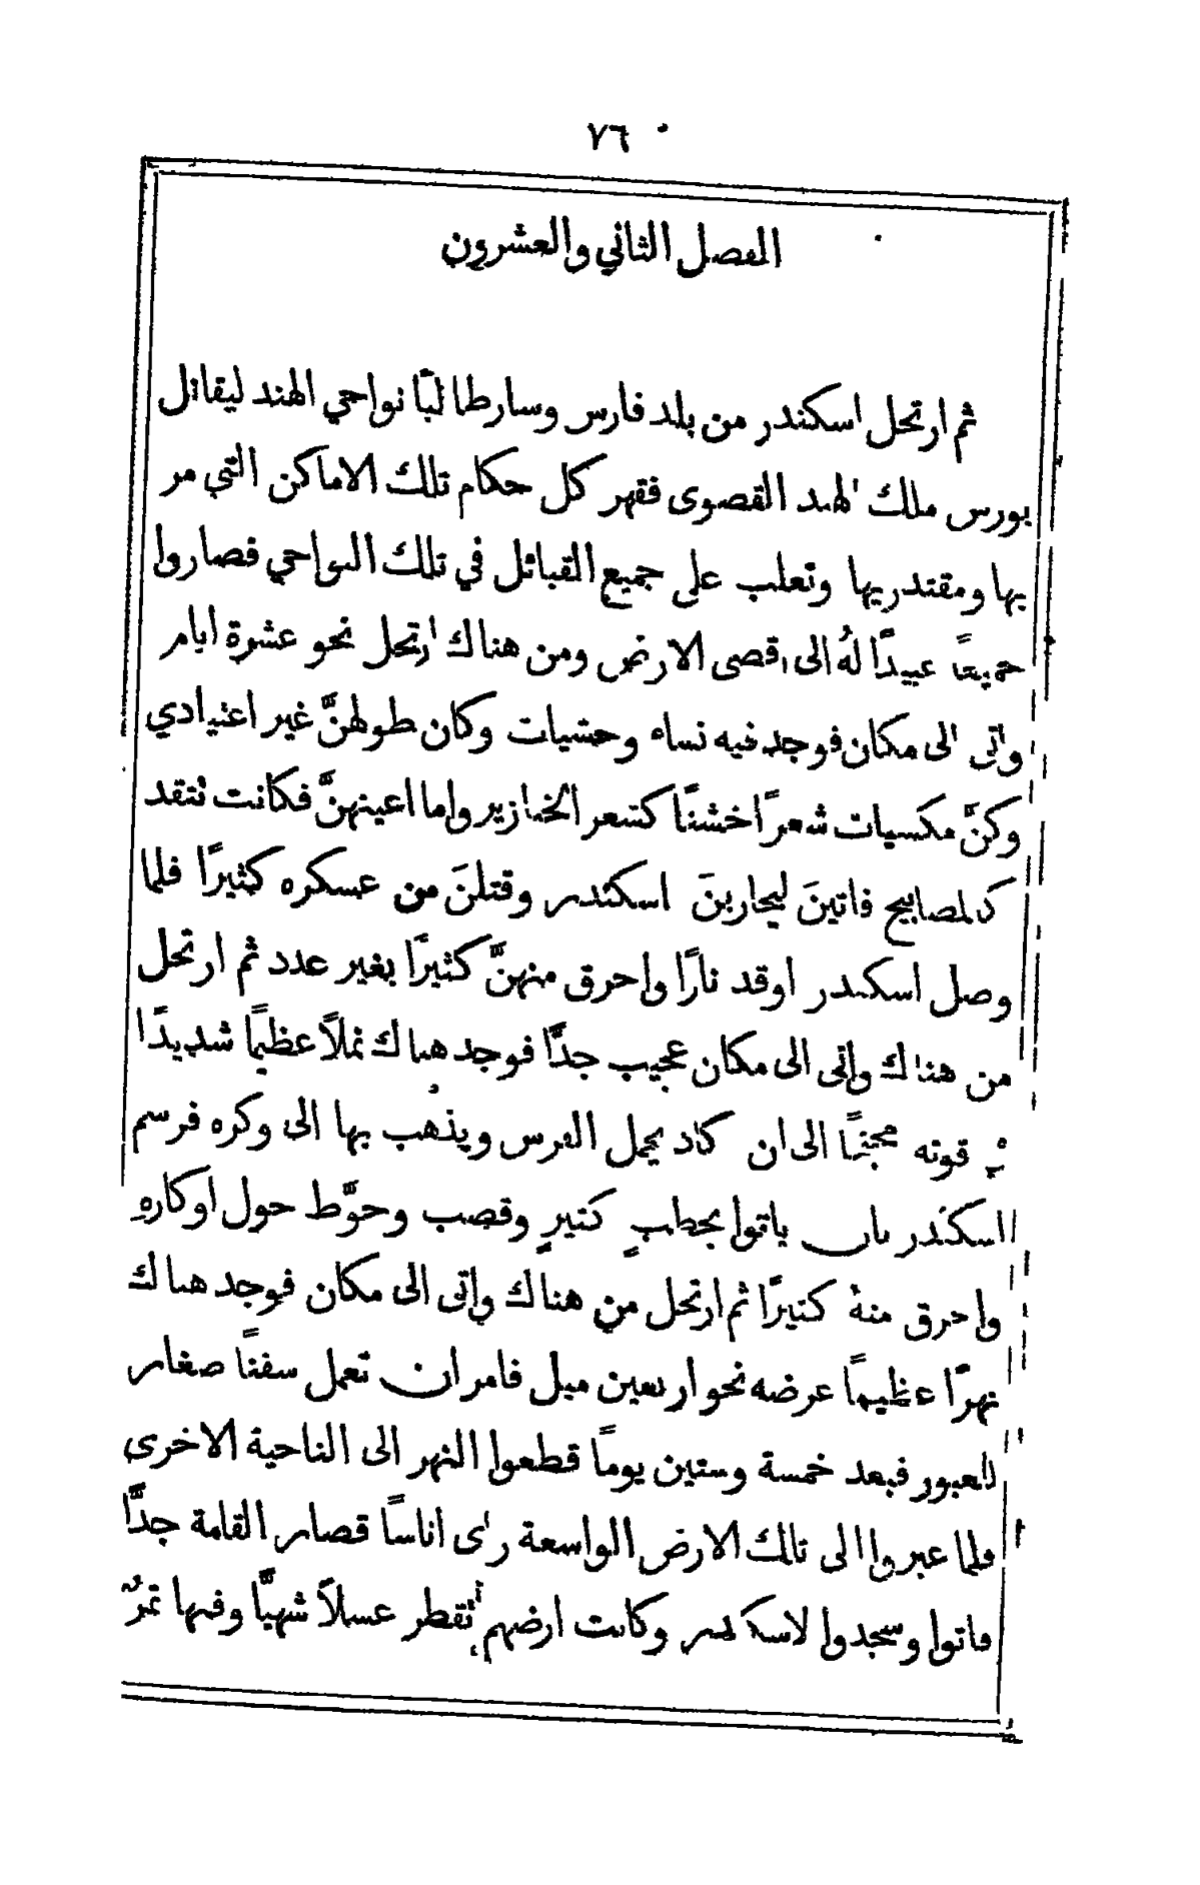 ٧٦
الفصل الثاني والعشرون
ثم ارتحل اسكندر من بلد فارس وسار طالبًا نواحي الهند ليقاتل
بورس ملك الهند القصوى فقهر كل حكام تلك الاماكن التي مر
بها ومقتدريها وتغلب على جميع القبائل في تلك النواحي فصاروا
جميعًا عبيدًا لهُ الى اقصى الارض ومن هناك ارتحل نحو عشرة ايام
واتى الى مكان فوجد فيه نساء وحشيات وكان طولهنَّ غير اعتيادي
وكنَّ مكسيات شعرًا خشنًا كشعر الخنازير واما اعينهنَّ فكانت تتقد
كالمصابيح فاتينَ ليحاربنَ اسكندر وقتلنَ من عسكره كثيرًا فلما
وصل اسكندر اوقد نارًا واحرق منهنَّ كثيرًا بغير عدد ثم ارتحل
من هناك واتى الى مكان عجيب جدًّا فوجد هناك نملاً عظيمًا شديدًا
قوته الى ان كاد يحمل الفرس ويذهب بها الى وكره فرسم
اسكندر بان ياتوا بحطبٍ كثيرٍ وقصب وحوَّط حول اوكارهِ
واحرق منهُ كثيرًا ثم ارتحل من هناك واتى الى مكان فوجد هناك
نهرًا عظيمًا عرضه نحو اربعين ميل فامر ان تعمل سفنًا صغار
للعبور فبعد خمسة وستين يومًا قطعوا النهر الى الناحية الاخرى
فلما عبروا الى تلك الارض الواسعة رأى اناسًا قصار القامة جدًّا
فاتوا وسجدوا لاسكندر وكانت ارضهم تقطر عسلاً شهيًّا وفيها تمرٌ